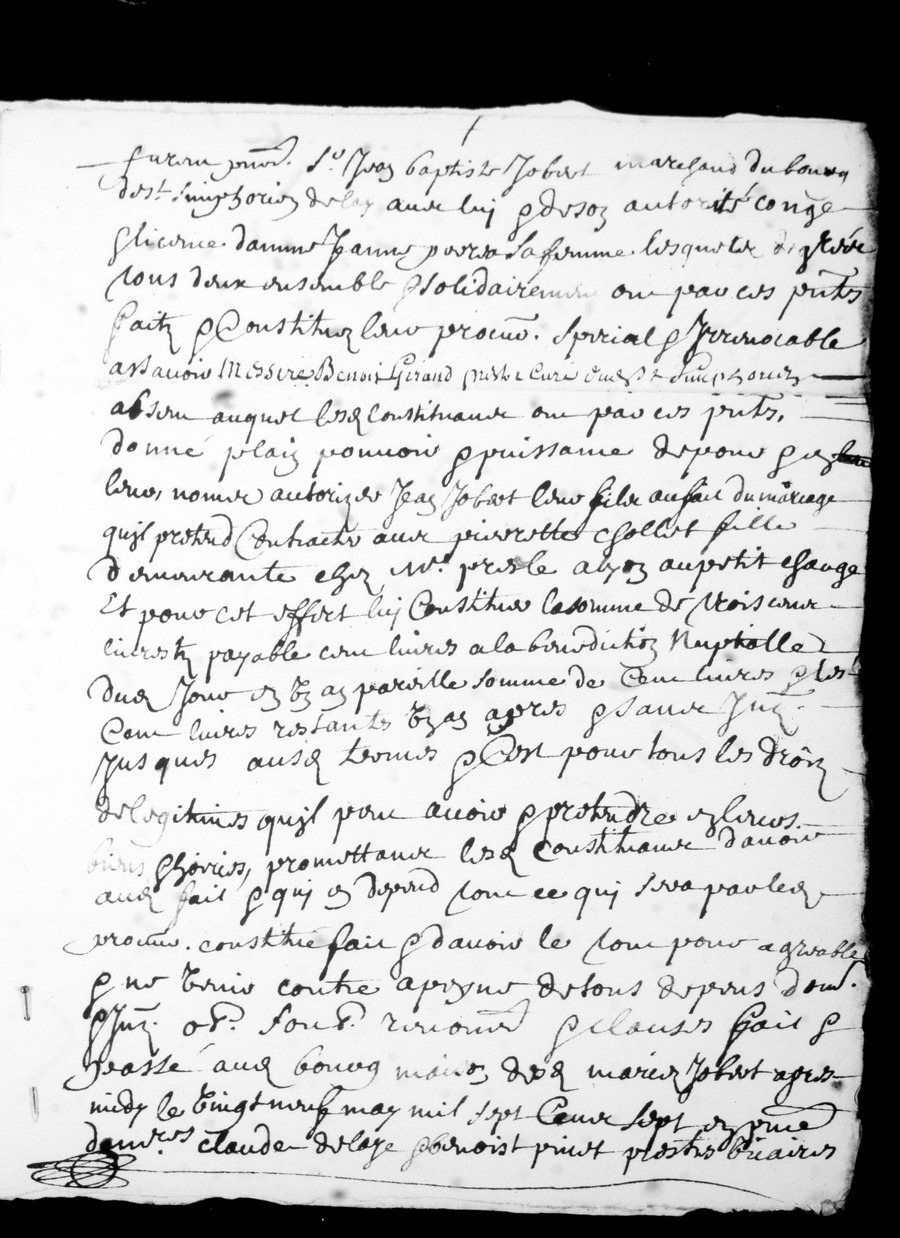 furent pnts. Sr. Jean baptiste Jobert marchand du bourg
de st. simphorien delay avec luy & de son autorité congé
& licence damme Jeanne sa femme lesquels de gré
tous deux ensemble & solidairement ont par ces pnts
fait & Constitué leur procur. special & Irrevocable
assavoir Messire Benoit Girand prestre Curé dud st Simphorien
absent auquel lesd constituants ont par ces pnts.
donné plain pouvoir & puissance de pour & en
leurs nomes autorizer Jean Jobert leur fils au fait du mariage
quil pretend Contracter avec pierrette chollet fille
demeurante chez Mr. presle a lyon au petit change
Et pour cet effect luy Constituer la somme de trois cent
livres tz payable cent livres a la benediction Nuptialle
dud Jour en un an pareille somme de Cent livres & les
Cent livres restants un an apres & sans Int.
Jusques ausd termes & C'est pour tous les droitz
de legitimes quil peut avoir & pretendre en leurs
biens & hoiries, promettants lesd constituants d'avoir
aud fait & qui en depend tout ce qui sera par led
procur. constitué fait & d'avoir le tout pour agreable
& ne venir contre a peyne de tous depens dom.
& Int. ob. soub. renonc. & clauses fait &
passé aud bourg maison desd mariez Jobert apres
midy le vingt neuf may mil sept Cent sept en pnce
de mres claude delage & benoist pinet prestres vicaires